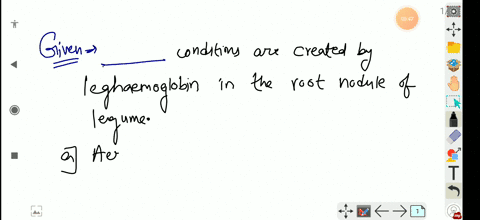 Given → ______ conditions are created by
leghaemoglobin in the root nodule of
legume.
a] Aer